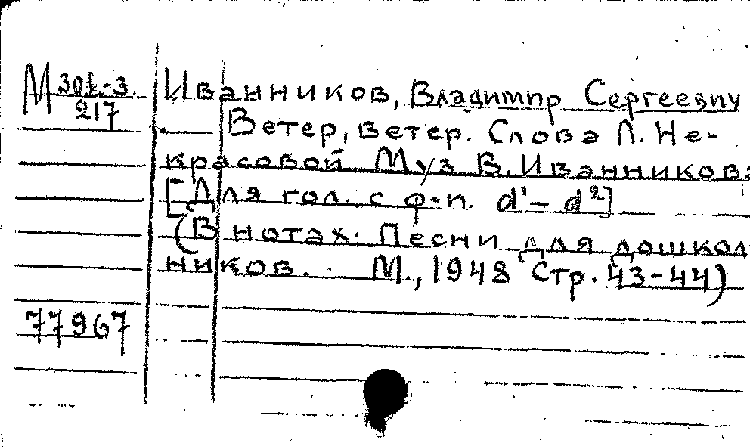 М 301-3
217
Иванников, Владимир Сергеевич
Ветер, ветер. Слова Л. Не-
красовой Муз В. Иванникова
[Для гол. с ф-п. d¹ – d²]
(В нотах. Песни для дошкол
ников. М., 1948 Стр. 43-44)
77967